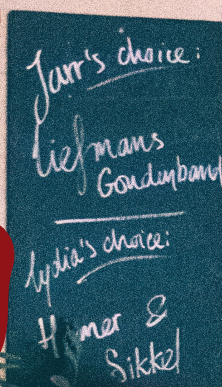 Jarr's choice:
Liefmans
Goudenband
Lydia's choice:
Hamer &
Sikkel